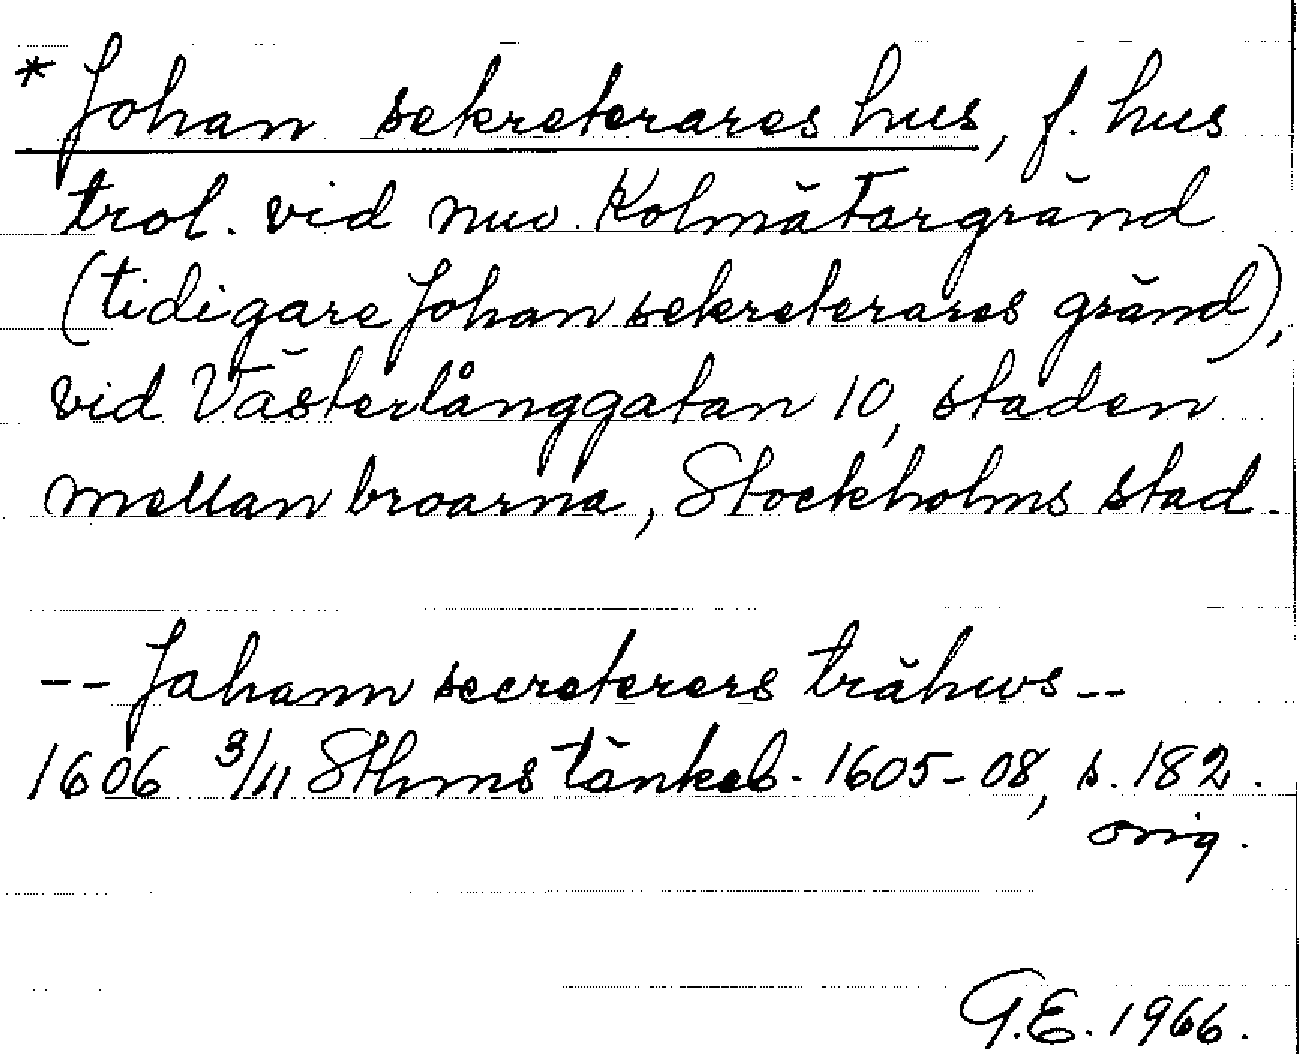 * Johan sekreterares hus, f. hus
trol. vid nuv. Kolmätargränd
(tidigare Johan sekreterares gränd),
vid Västerlånggatan 10, staden
mellan broarna, Stockholms stad.
-- Johann secreterers trähws --
1606 3/11 Sthms tänkeb. 1605-08, s. 182.
orig.
G.E. 1966.